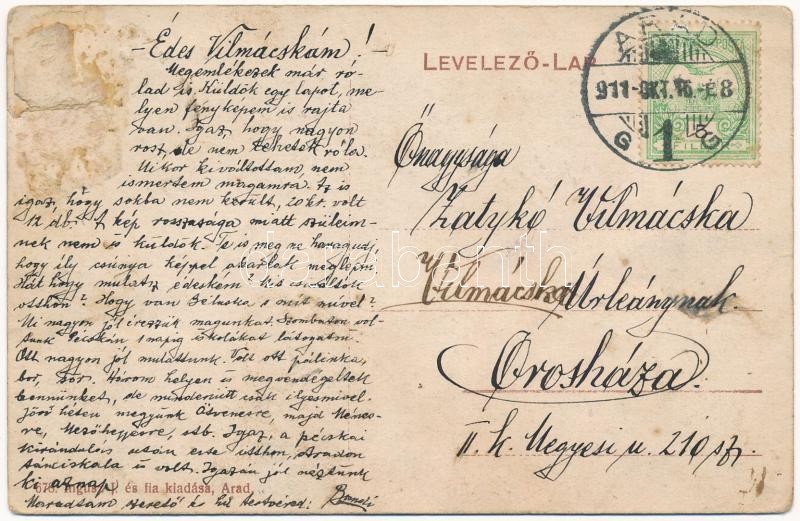 — Édes Vilmácskám! —
Megemlékezek már ró-
lad is. Küldök egy lapot, me-
lyen fényképem is rajta
van. Igaz, hogy nagyon
rossz, de nem tehetek róla.
Mikor kiváltottam, nem
ismertem magamra. Az is
igaz, hogy sokba nem került, 20 kr. volt
12 db. A kép rosszasága miatt szüleim-
nek nem is küldök. Te is meg ne haragudj,
hogy ily csúnya képpel akarlak meglepni.
Hát hogy mulatsz édeském? kis
otthon? Hogy van Béluska s mit mível?
Mi nagyon jól érezzük magunkat. Szombaton vol-
tunk Pécskán 1 napig iskolákat látogatni.
Ott nagyon jól mulattunk. Volt ott pálinka,
bor, sör. Három helyen is megvendégeltek
bennünket, de mindenütt csak
Jövő héten megyünk Ötvenesre, majd Ménes-
re, Mezőhegyesre, stb. Igaz, a pécskai
kirándulás után este itthon, Aradon
tánciskola is volt. Igazán jól néztünk
ki aznap.
Maradtam szerető és hű testvéred: Bandi
678. Ingusz J. és fia kiadása, Arad.
LEVELEZŐ-LAP
ARAD
911-OKT.16.-É8
G G
1
FILLÉR
Őnagysága
Zatykó Vilmácska
Vilmácska
Úrleánynak.
Orosháza.
II. k. Megyesi u. 210 sz.